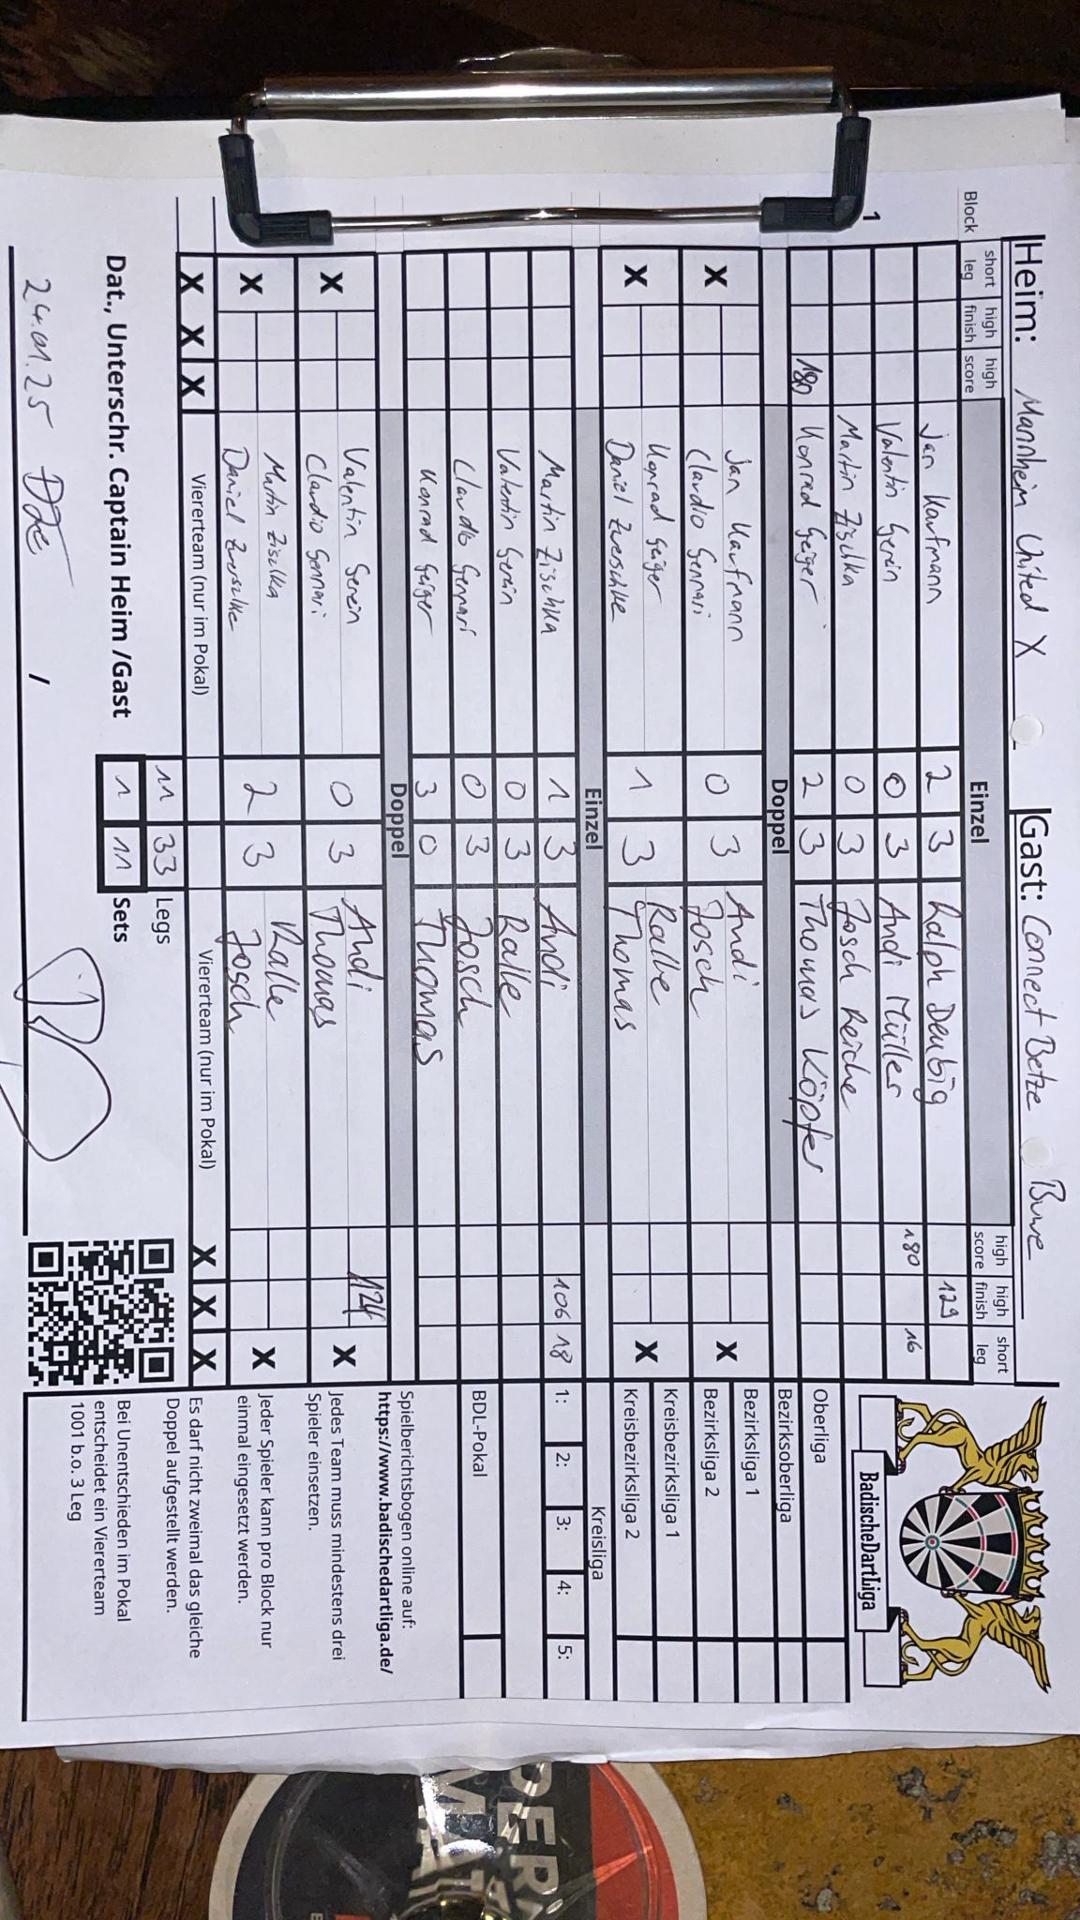 Heim: Mannheim United X Gast: Connect Betze Buwe
Block short leg high finish high score Einzel high score high finish short leg
1
Jan Kaufmann 2 3 Ralph Deubig 129
Valentin Serein 0 3 Andi Müller 180 16
Martin Zischka 0 3 Josch Reiche
180 Konrad Geiger 2 3 Thomas Köpfer
Doppel
X Jan Kaufmann 0 3 Andi X
Claudio Gennari Josch
X Konrad Geiger 1 3 Ralle X
Daniel Zverschke Thomas
Einzel
Martin Zischka 1 3 Andi 106 18
Valentin Serein 0 3 Ralle
Claudio Gennari 0 3 Josch
Konrad Geiger 3 0 Thomas
Doppel
X Valentin Serein 0 3 Andi 124 X
Claudio Gennari Thomas
X Martin Zischka 2 3 Ralle X
Daniel Zverschke Josch
X X X Viererteam (nur im Pokal) Viererteam (nur im Pokal) X X X
11 33 Legs
Dat., Unterschr. Captain Heim /Gast 1 11 Sets
24.01.25 /
BadischeDartLiga
Oberliga
Bezirksoberliga
Bezirksliga 1
Bezirksliga 2
Kreisbezirksliga 1
Kreisbezirksliga 2
Kreisliga
1: 2: 3: 4: 5:
BDL-Pokal
Spielberichtsbogen online auf:
https://www.badischedartliga.de/
Jedes Team muss mindestens drei
Spieler einsetzen.
Jeder Spieler kann pro Block nur
einmal eingesetzt werden.
Es darf nicht zweimal das gleiche
Doppel aufgestellt werden.
Bei Unentschieden im Pokal
entscheidet ein Viererteam
1001 b.o. 3 Leg